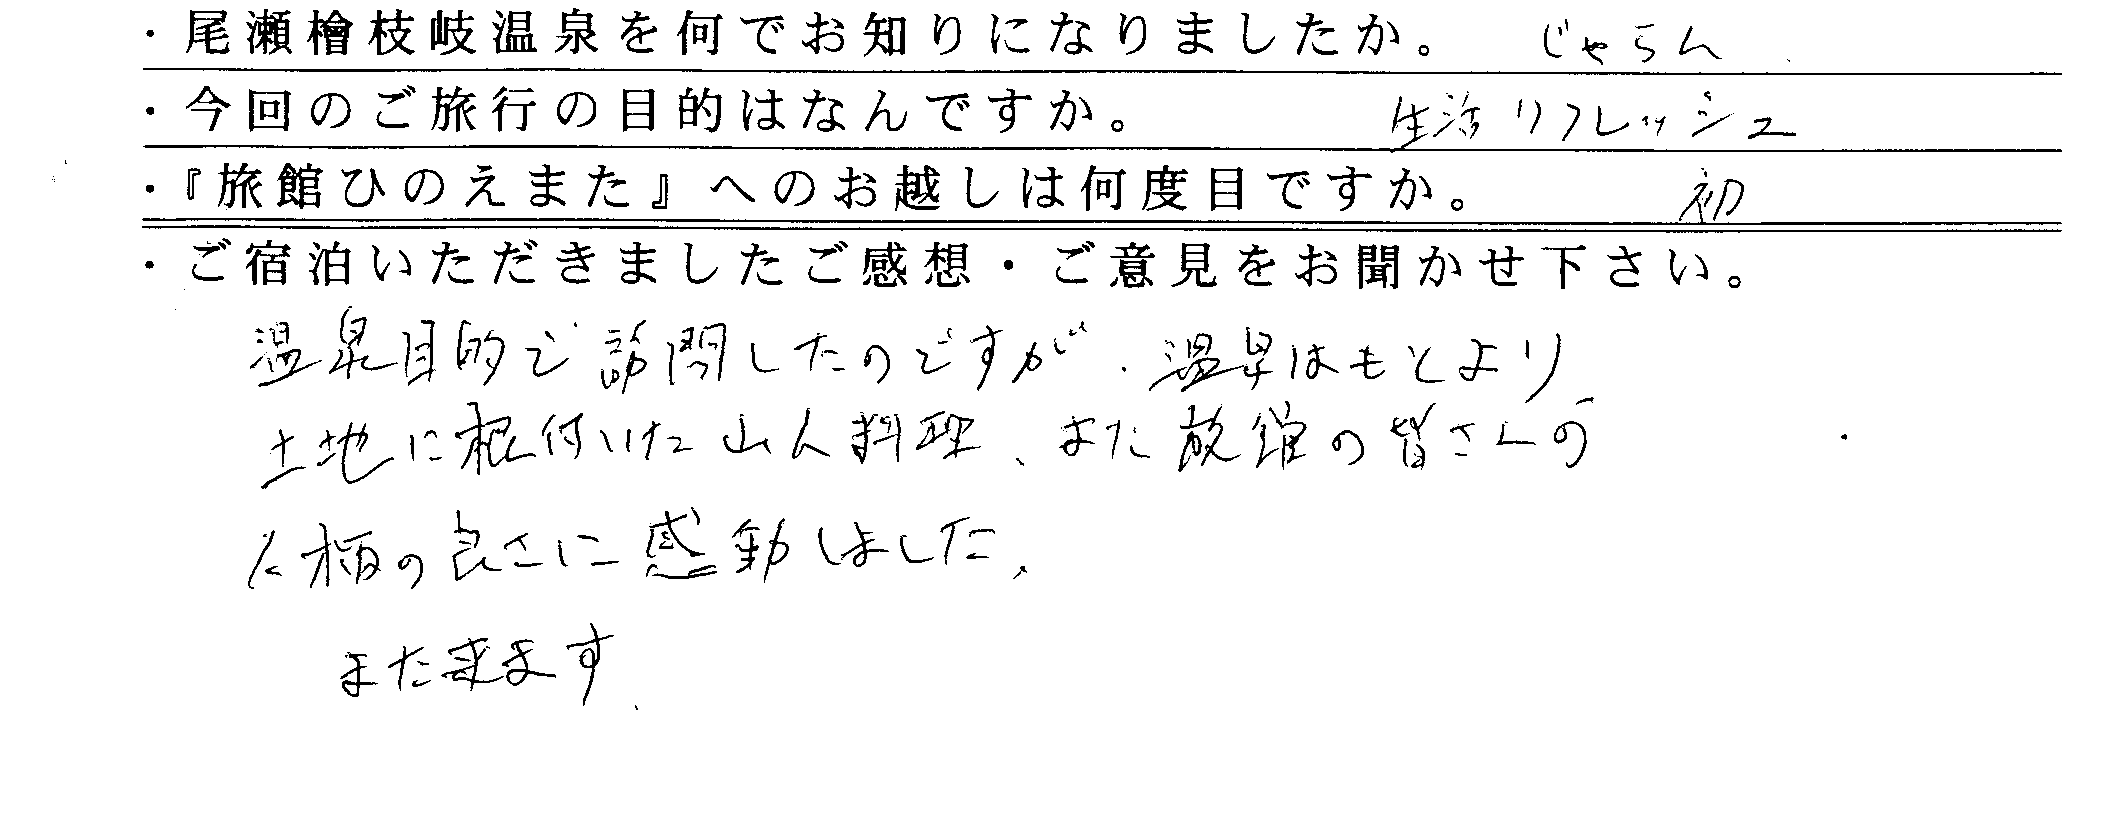 ・尾瀬檜枝岐温泉を何でお知りになりましたか。 じゃらん
・今回のご旅行の目的はなんですか。 生活リフレッシュ
・『旅館ひのえまた』へのお越しは何度目ですか。 初
・ご宿泊いただきましたご感想・ご意見をお聞かせ下さい。
温泉目的で訪問したのですが、温泉はもとより
土地に根付いた山人料理、また旅館の皆さんの
人柄の良さに感動しました。
また来ます。